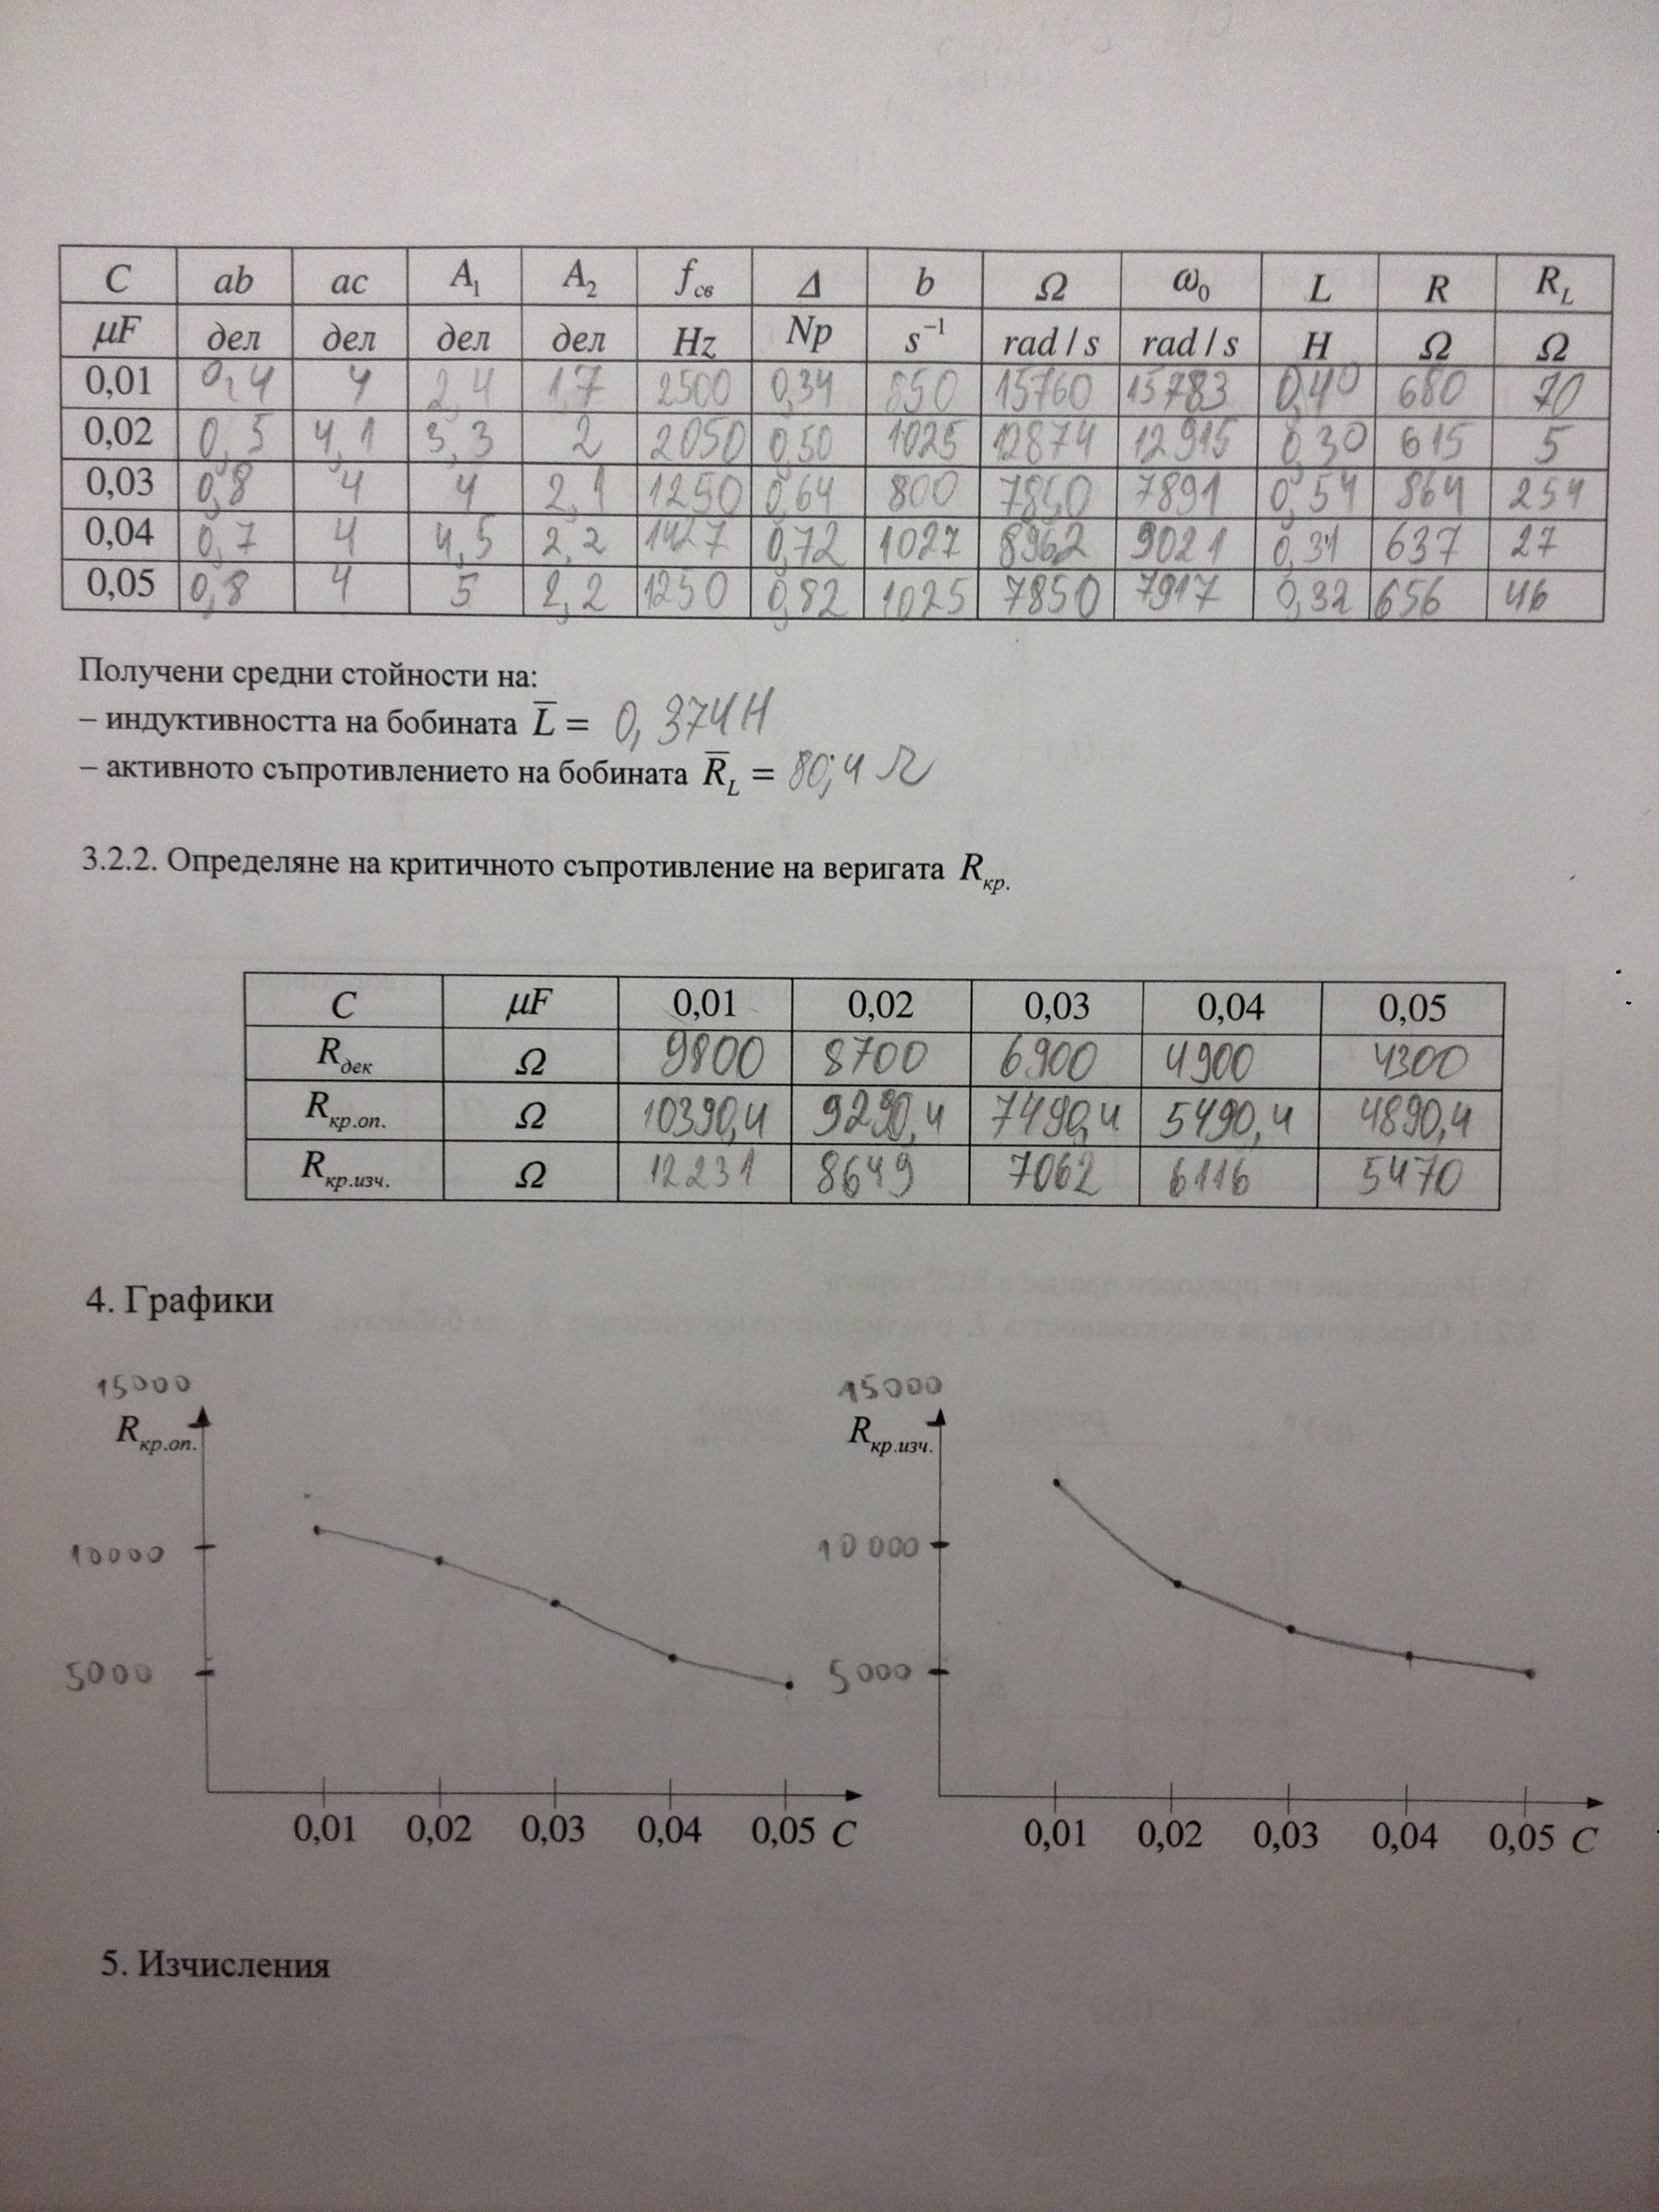 C ab ac A₁ A₂ f_св Δ b Ω ω₀ L R R_L
μF дел дел дел дел Hz Np s⁻¹ rad / s rad / s H Ω Ω
0,01 0,4 4 2,4 1,7 2500 0,34 850 15760 15783 0,40 680 70
0,02 0,5 4,1 3,3 2 2050 0,50 1025 12874 12915 0,30 615 5
0,03 0,8 4 4 2,1 1250 0,64 800 7850 7891 0,54 864 254
0,04 0,7 4 4,5 2,2 1427 0,72 1027 8962 9021 0,31 637 27
0,05 0,8 4 5 2,2 1250 0,82 1025 7850 7917 0,32 656 46
Получени средни стойности на:
– индуктивността на бобината L̅ = 0,374 H
– активното съпротивлението на бобината R̅_L = 80,4 Ω
3.2.2. Определяне на критичното съпротивление на веригата R_кр.
C μF 0,01 0,02 0,03 0,04 0,05
R_дек Ω 9800 8700 6900 4900 4300
R_кр.оп. Ω 10390,4 9290,4 7490,4 5490,4 4890,4
R_кр.изч. Ω 12231 8649 7062 6116 5470
4. Графики
15000
R_кр.оп.
10000
5000
0,01 0,02 0,03 0,04 0,05 C
15000
R_кр.изч.
10 000
5000
0,01 0,02 0,03 0,04 0,05 C
5. Изчисления